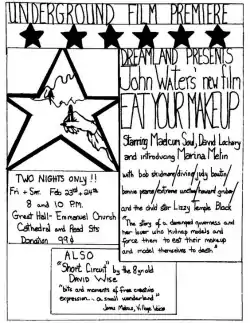 UNDERGROUND FILM PREMIERE
DREAMLAND PRESENTS
John Waters' new film
EAT YOUR MAKEUP
Starring Maelcum Soul, David Lochary
and introducing Marina Melin
with bob skidmore/divine/judy boutin/
bonnie pearce/extreme unction/howard gruber/
and the child star Lizzy Temple Black
"The story of a deranged governess and
her lover who kidnap models and
force them to eat their makeup
and model themselves to death."
TWO NIGHTS ONLY!!
Fri + Sat. Feb 23rd + 24th
8 and 10 P.M.
Great Hall - Emmanuel Church
Cathedral and Read Sts
Donation 99¢
ALSO
"Short Circuit" by the 8 yr old
David Wise
"bits and moments of free creative
expression... a small wonderland"
Jonas Mekas, Village Voice